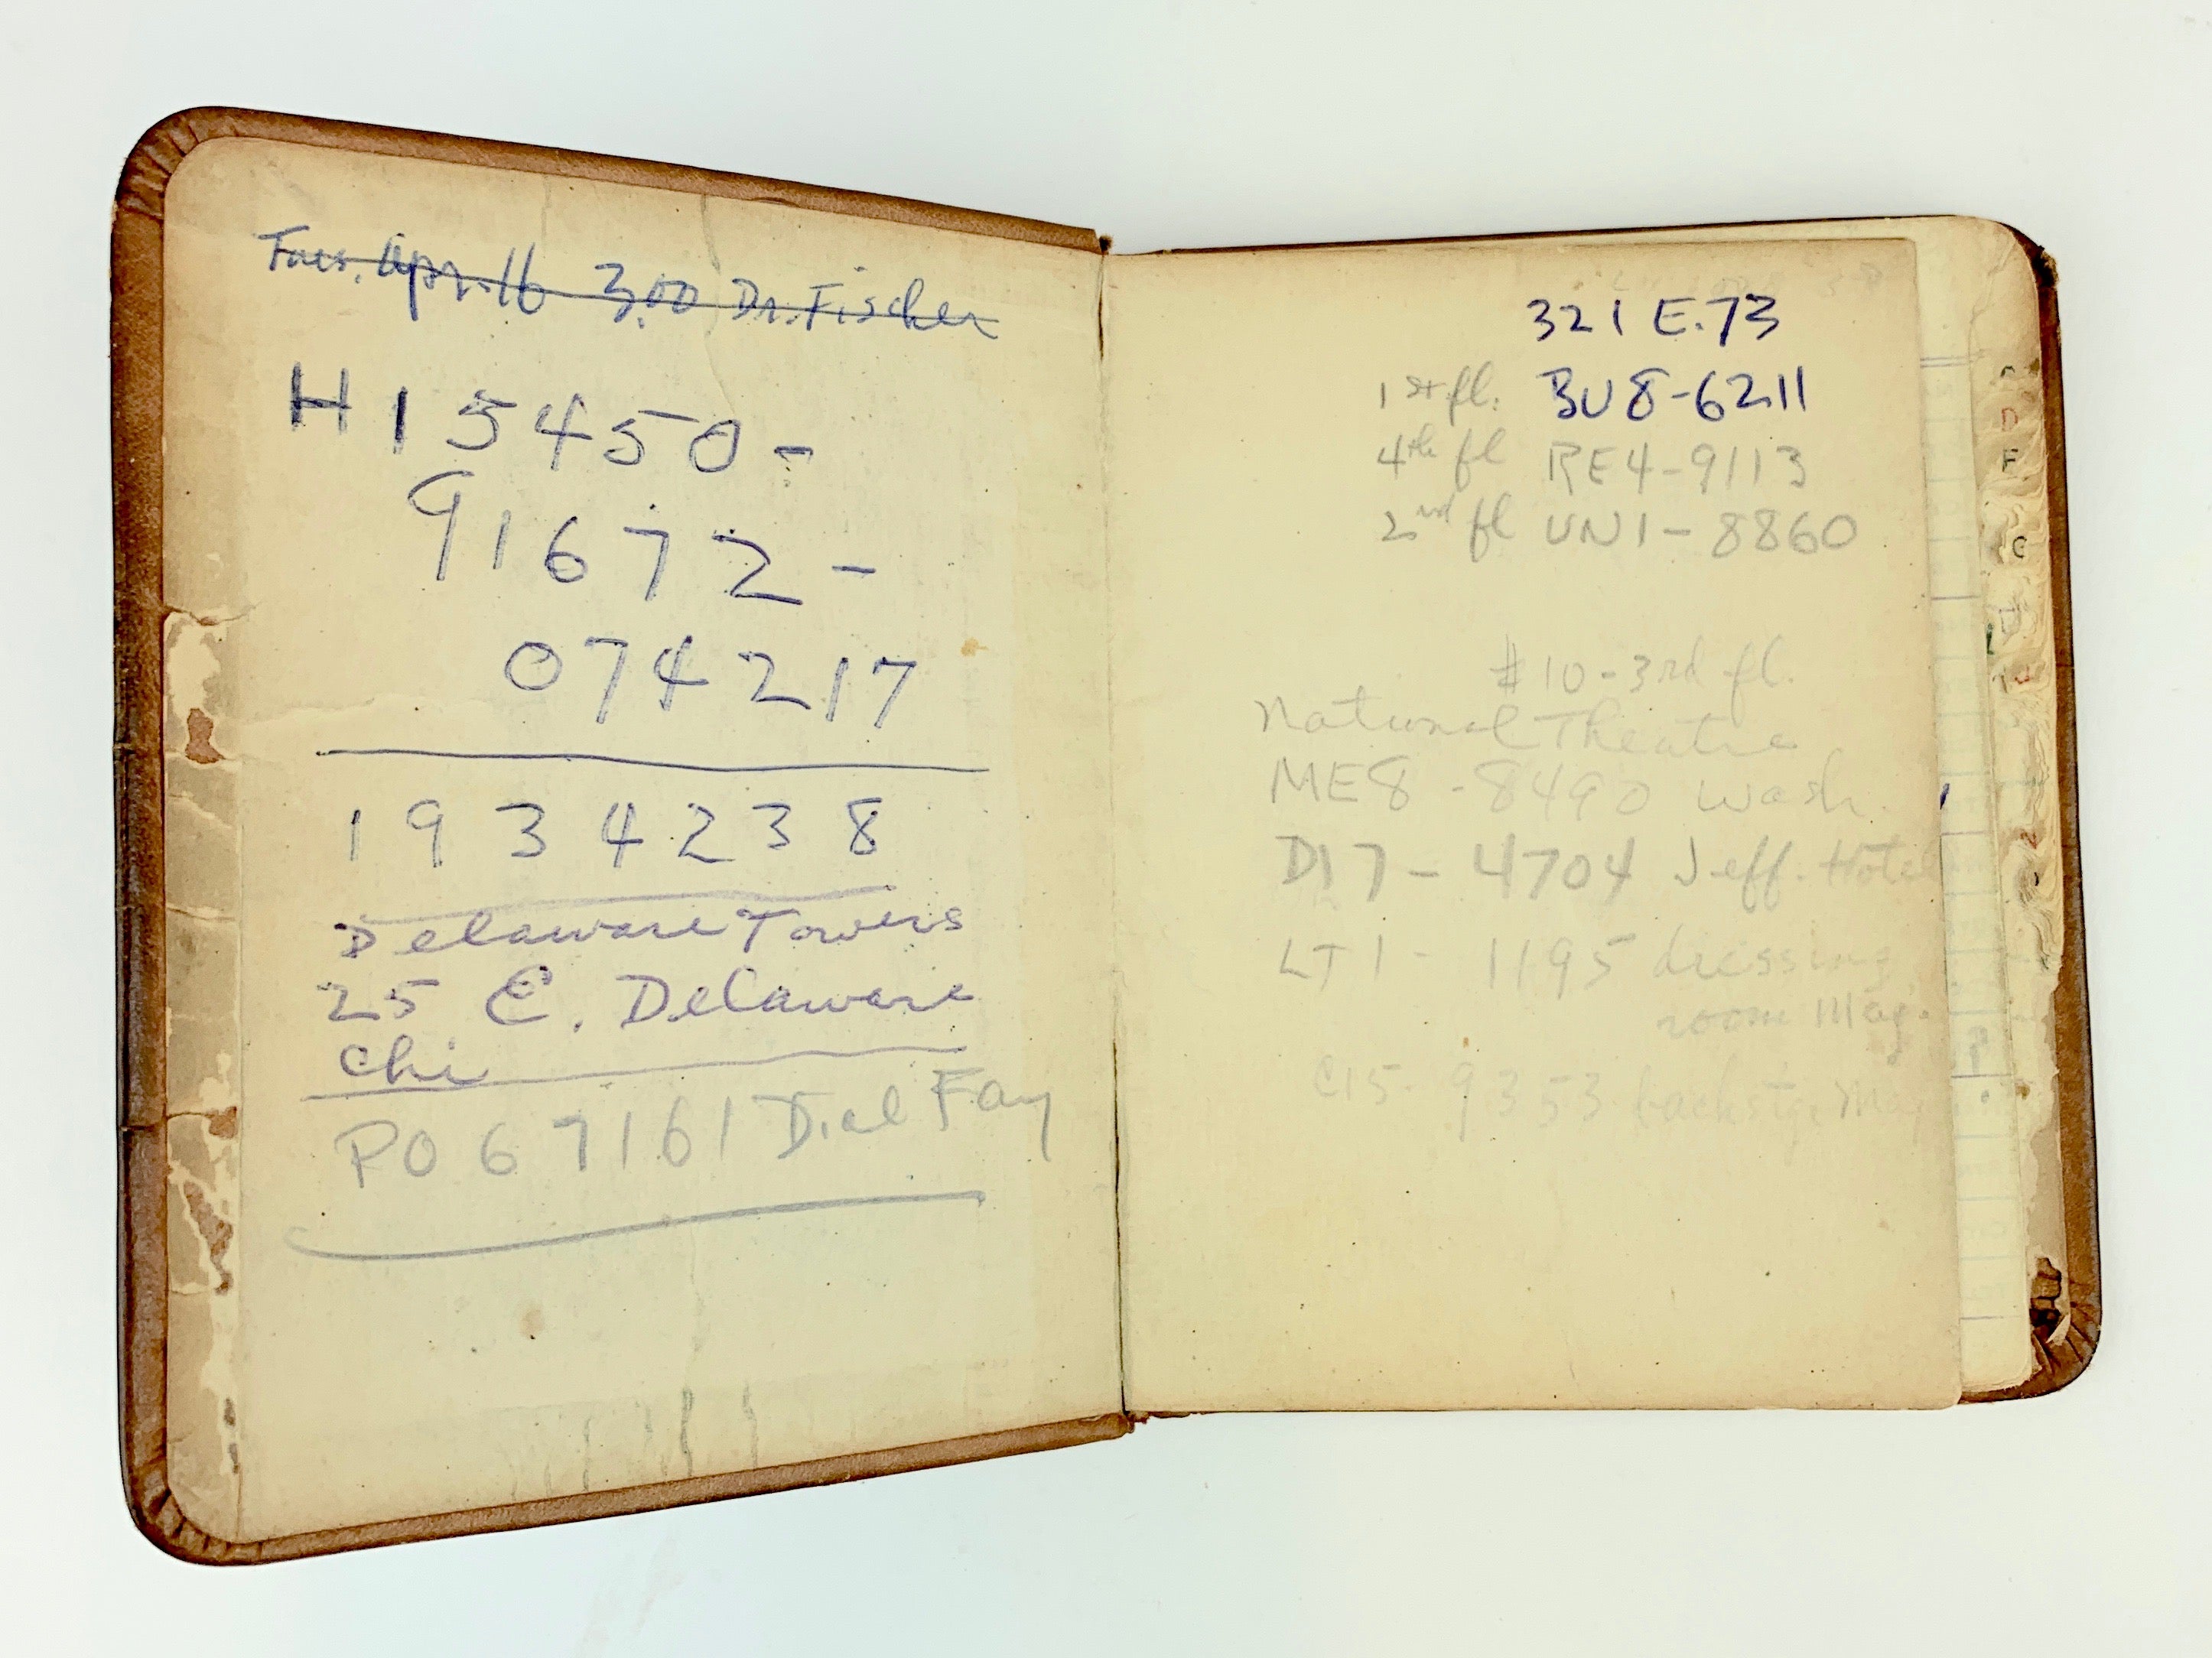 Tues. Apr. 16 3:00 Dr. Fischer
H 15450-
91672-
074217
1934238
Delaware Towers
25 E. Delaware
Chi
PO 6 7161 Dial Fay
321 E. 73
1st fl. BU 8-6211
4th fl RE4-9113
2nd fl UN1-8860
#10-3rd fl.
National Theatre
ME8-8490 Wash.
DI7-4704 Jeff. Hotel
LT1-1195 dressing
room Mag.
CI5-9353 backstge Mag